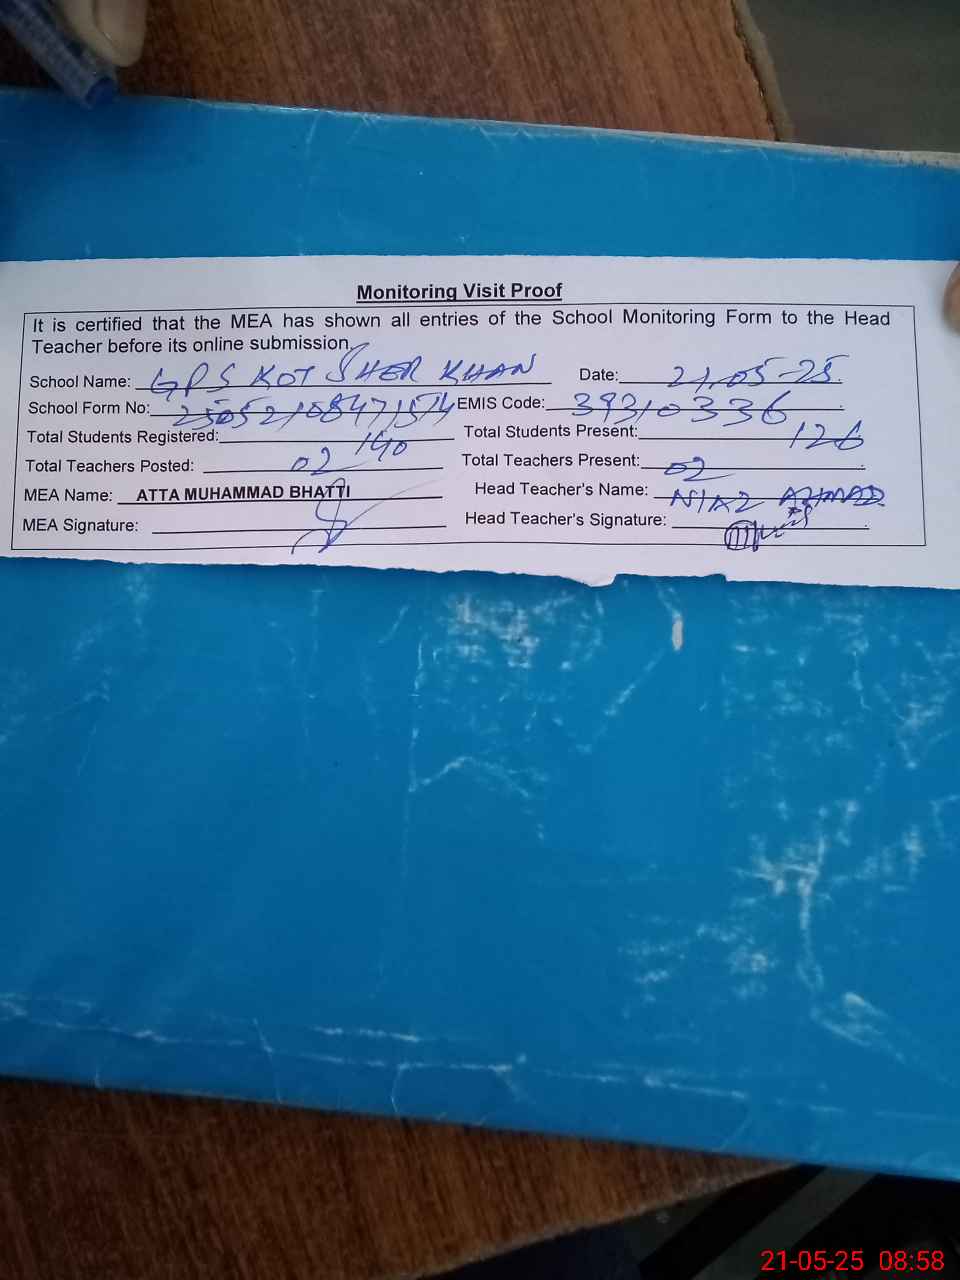 Monitoring Visit Proof
It is certified that the MEA has shown all entries of the School Monitoring Form to the Head
Teacher before its online submission.
School Name: GPS KOT SHER KHAN Date: 21-05-25.
School Form No: 25052108471574 EMIS Code: 39310336
Total Students Registered: 140 Total Students Present: 126
Total Teachers Posted: 02 Total Teachers Present: 02
MEA Name: ATTA MUHAMMAD BHATTI Head Teacher's Name: NIAZ AHMAD
MEA Signature: Head Teacher's Signature:
21-05-25 08:58